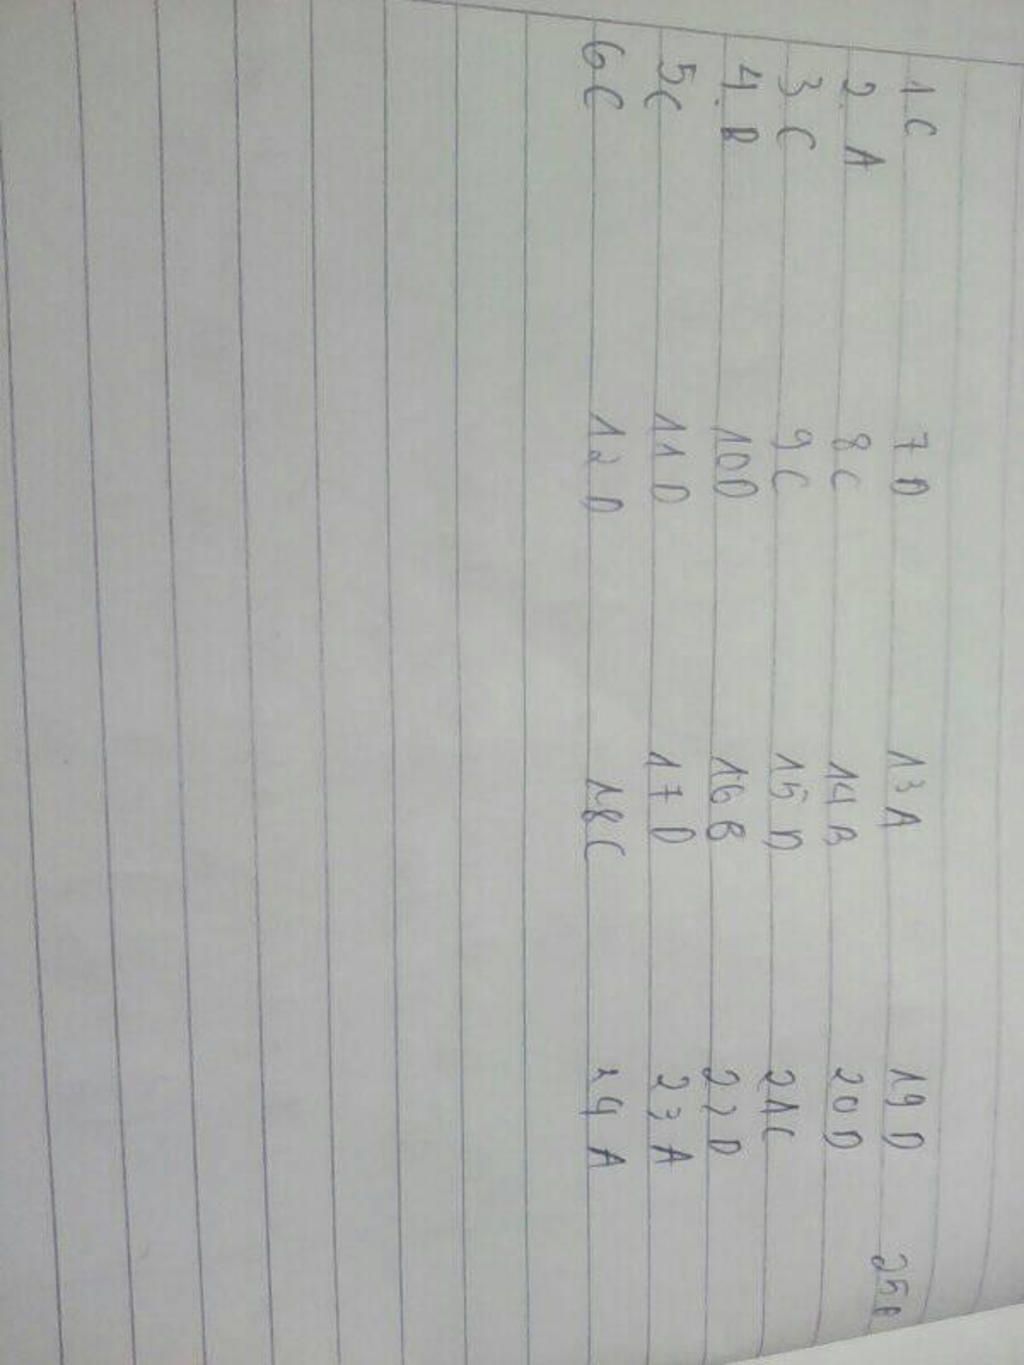 1 C 7 D 13 A 19 D
2 A 8 C 14 B 20 D
3 C 9 C 15 D 21 C
4. B 10 D 16 B 22 D
5 C 11 D 17 D 23 A
6 C 12 D 18 C 24 A